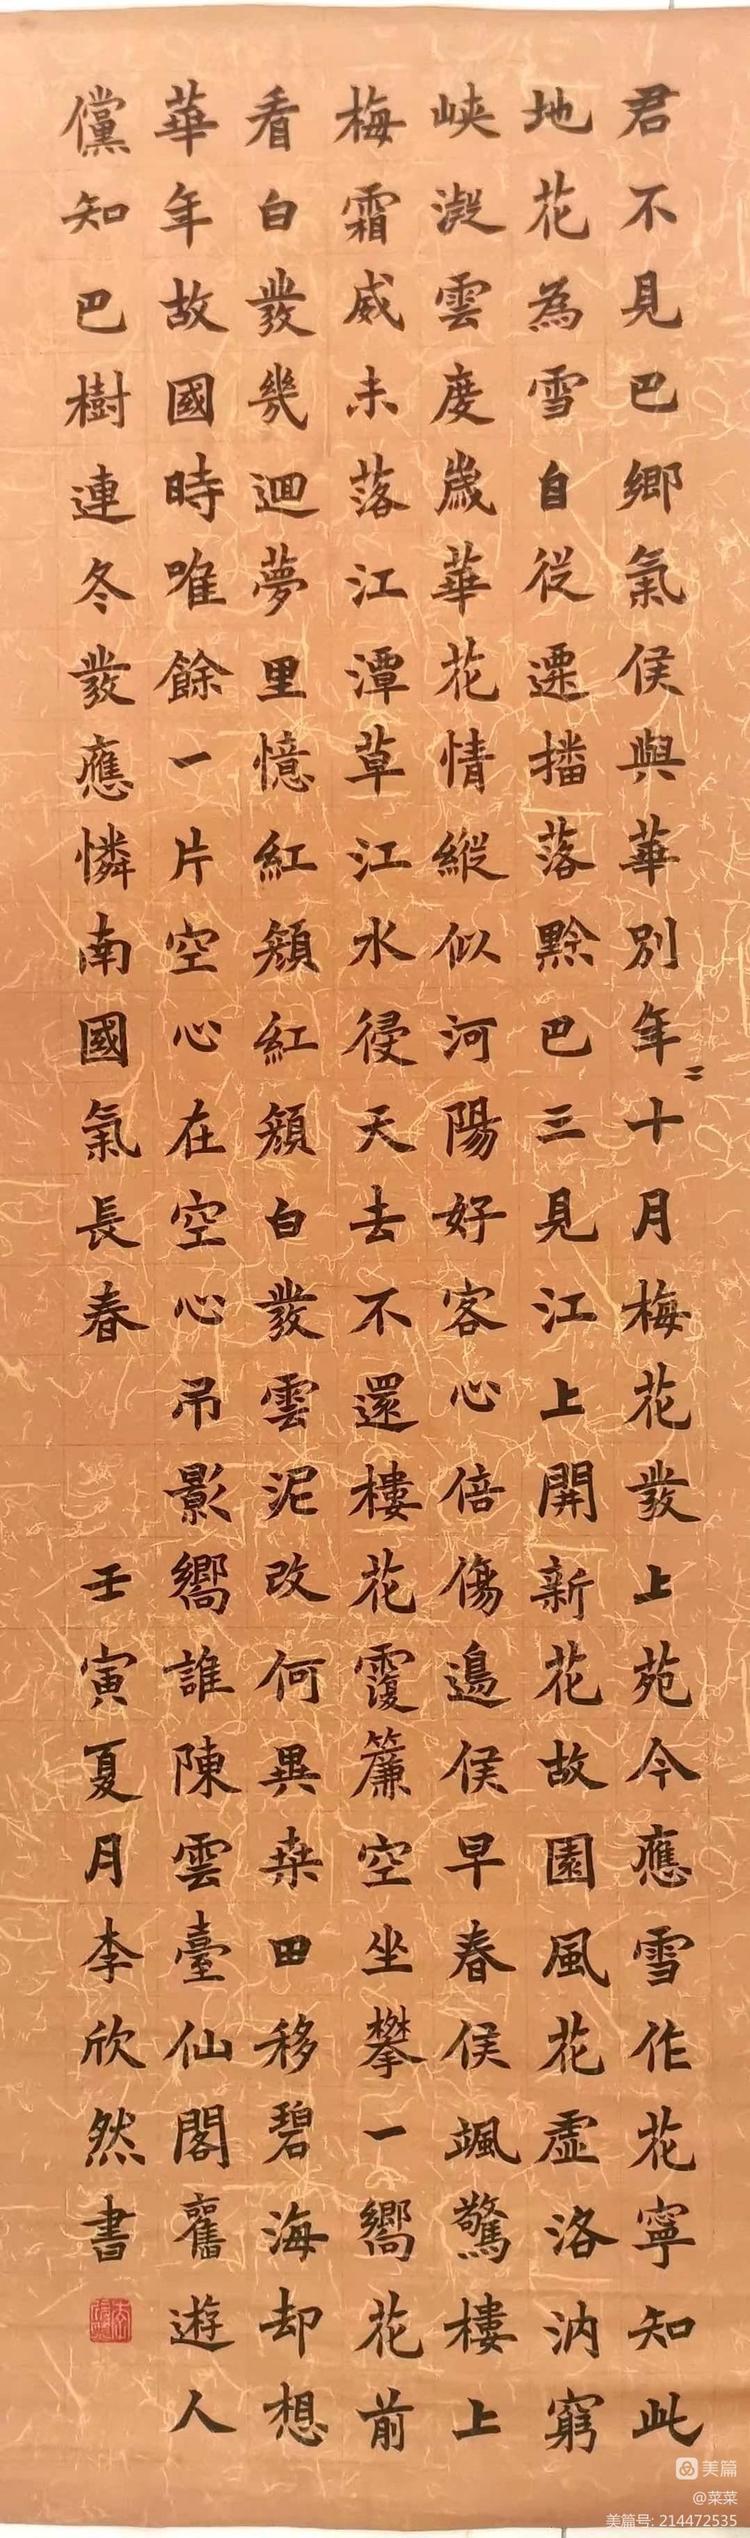 君不見巴鄉氣侯與華別年〻十月梅花發上苑今應雪作花寧知此
地花為雪自從遷播落黔巴三見江上開新花故園風花虛洛汭窮
峽凝雲度歲華花情縱似河陽好客心倍傷邊侯早春侯颯驚樓上
梅霜威未落江潭草江水侵天去不還樓花覆簾空坐攀一嚮花前
看白發幾迴夢里憶紅顏紅顏白發雲泥改何異桑田移碧海却想
華年故國時唯餘一片空心在空心吊影嚮誰陳雲臺仙閣舊遊人
儻知巴樹連冬發應憐南國氣長春 壬寅夏月李欣然書
美篇
@菜菜
美篇号: 214472535